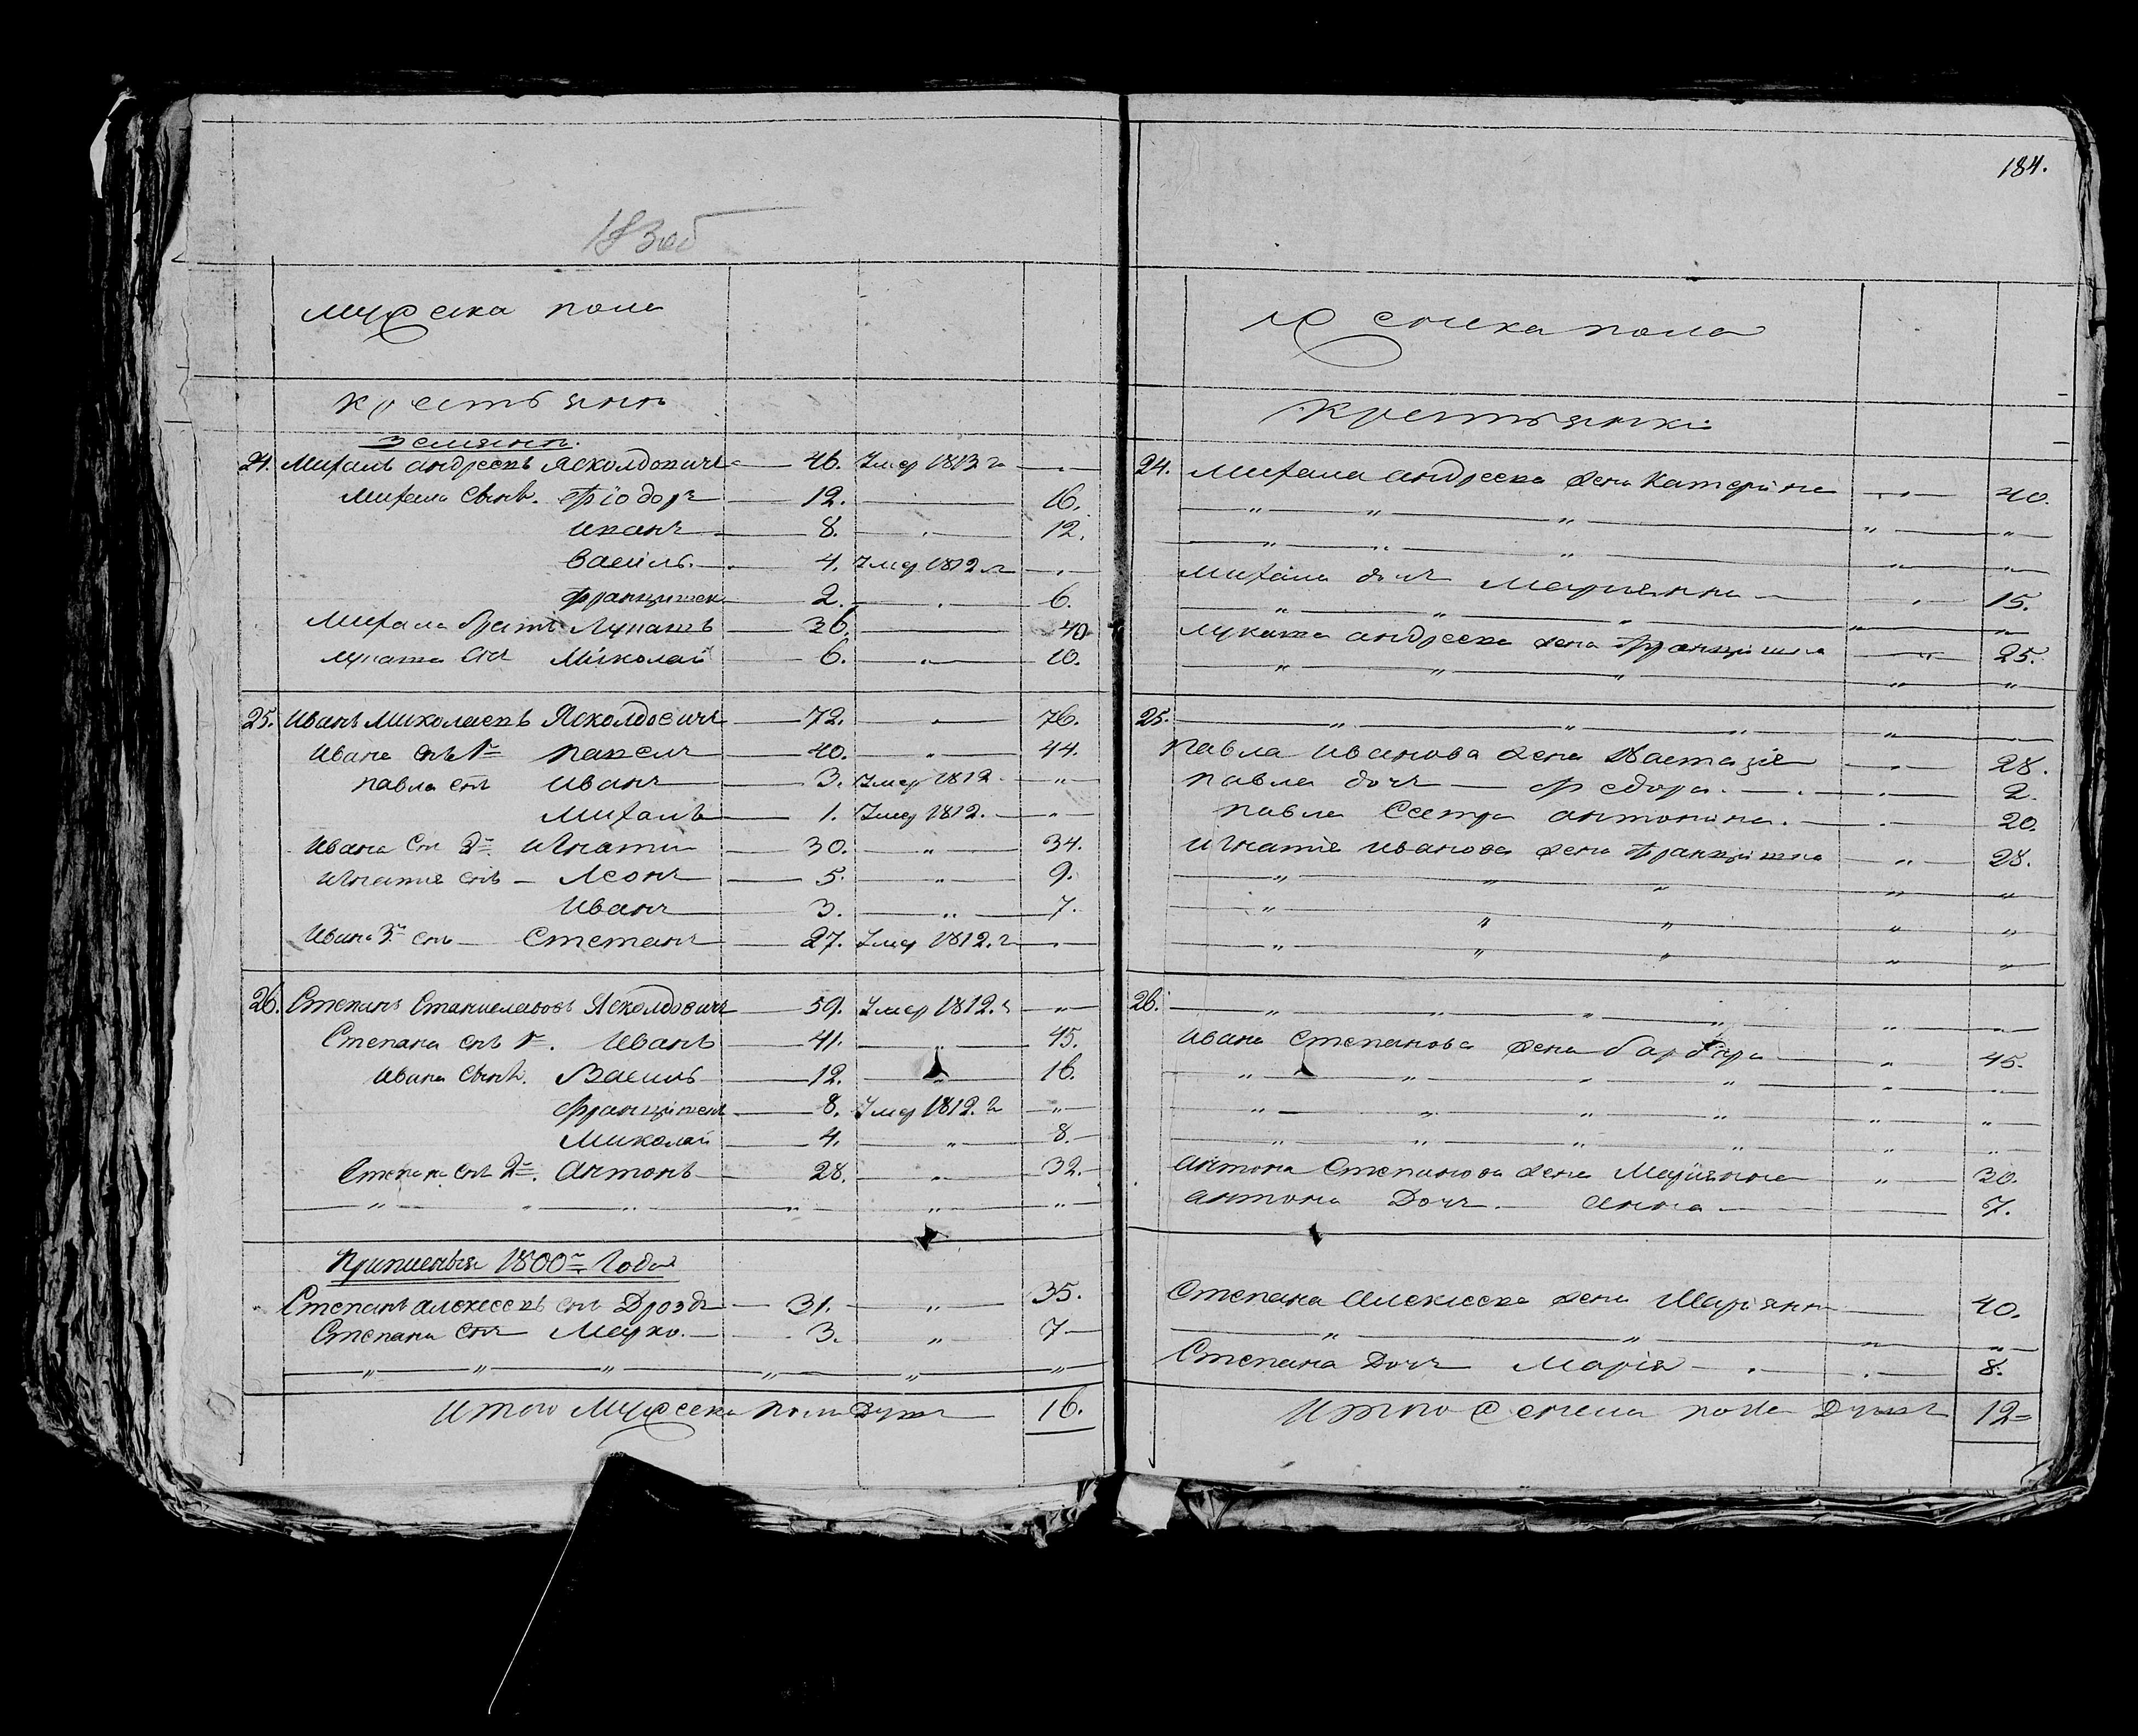 183 об
мужеска пола
крестьянъ
земянъ.
24. Михалъ андреевъ Ясколдовичъ — 46. Умер 1813 г — „ —
Михала Сынъ. Фіодоръ — 12. — 16.
Иванъ — 8. — „ — 12.
Василь. — 4. Умер 1812 г — „ —
Францишек — 2. — „ — 6.
Михала братъ Лукашъ — 36. — 40
Лукаша Снъ Миколай — 6. — „ — 10.
25. Иванъ Миколаевъ Ясколдовичъ — 72. — „ — 76.
Ивана Снъ 1й Павелъ — 40. — „ — 44.
Павла Снъ Иванъ — 3. Умер 1812 — „ —
Михалъ — 1. Умер 1812. — „ —
Ивана Снъ 2й Игнатій — 30. — „ — 34.
Игнатія снъ — Леонъ — 5. — „ — 9.
Иванъ — 3. — „ — 7.
Ивана 3й снъ — Степанъ — 27. Умер 1812. г — „ —
26. Степанъ Станиславовъ Ясколдовичъ — 59. Умер 1812. г — „ —
Степана снъ 1й. Иванъ — 41. — „ — 45.
Ивана Сынъ. Василь — 12. — „ — 16.
Францишекъ — 8. Умер 1812. г — „ —
Миколай — 4. — „ — 8. —
Степана снъ 2й. Антонъ — 28. — „ — 32. —
— „ — „ — „ — „ — „ — „ —
Приписныя 1800го Года
Степанъ алексеевъ снъ Дроздъ — 31. — „ — 35.
Степана снъ Марко. — 3. „ — 7 —
— „ — „ — „ — „ — „ — „ —
Итого Мужеска пола Душъ — 16.
184.
женска пола
Крестьянки
24. Михала андреева жена Катерина — „ — 40.
— „ — „ — „ — „ — „ —
— „ — „ — „ — „ — „ —
Михала дочъ Марианна — „ — 15.
— „ — „ — „ — „ — „ —
Лукаша андреева жена Францишка — „ — 25.
— „ — „ — „ — „ — „ —
25. — „ — „ — „ — „ — „ —
Павла Иванова жена Настазія — „ — 28.
Павла дочъ — Федора. — . — „ — 2.
Павла Сестра антонина. — „ — 20.
Игнатія Иванова жена Францишка — „ — 28.
— „ — „ — „ — „ — „ —
— „ — „ — „ — „ — „ —
— „ — „ — „ — „ — „ —
26. — „ — „ — „ — „ — „ — „ —
Ивана Степанова жена барбара — „ — 45.
— „ — „ — „ — „ — „ — „ —
— „ — „ — „ — „ — „ — „ —
— „ — „ — „ — „ — „ — „ —
Антона Степанова жена Маріянна — „ — 30.
Антона Дочъ — Анна — 7.
Степана Алексеева жена Маріянна — 40.
— „ — „ — „ — „ —
Степана Дочъ Марія — . — „ — 8.
Итого женска пола Душъ 12 =